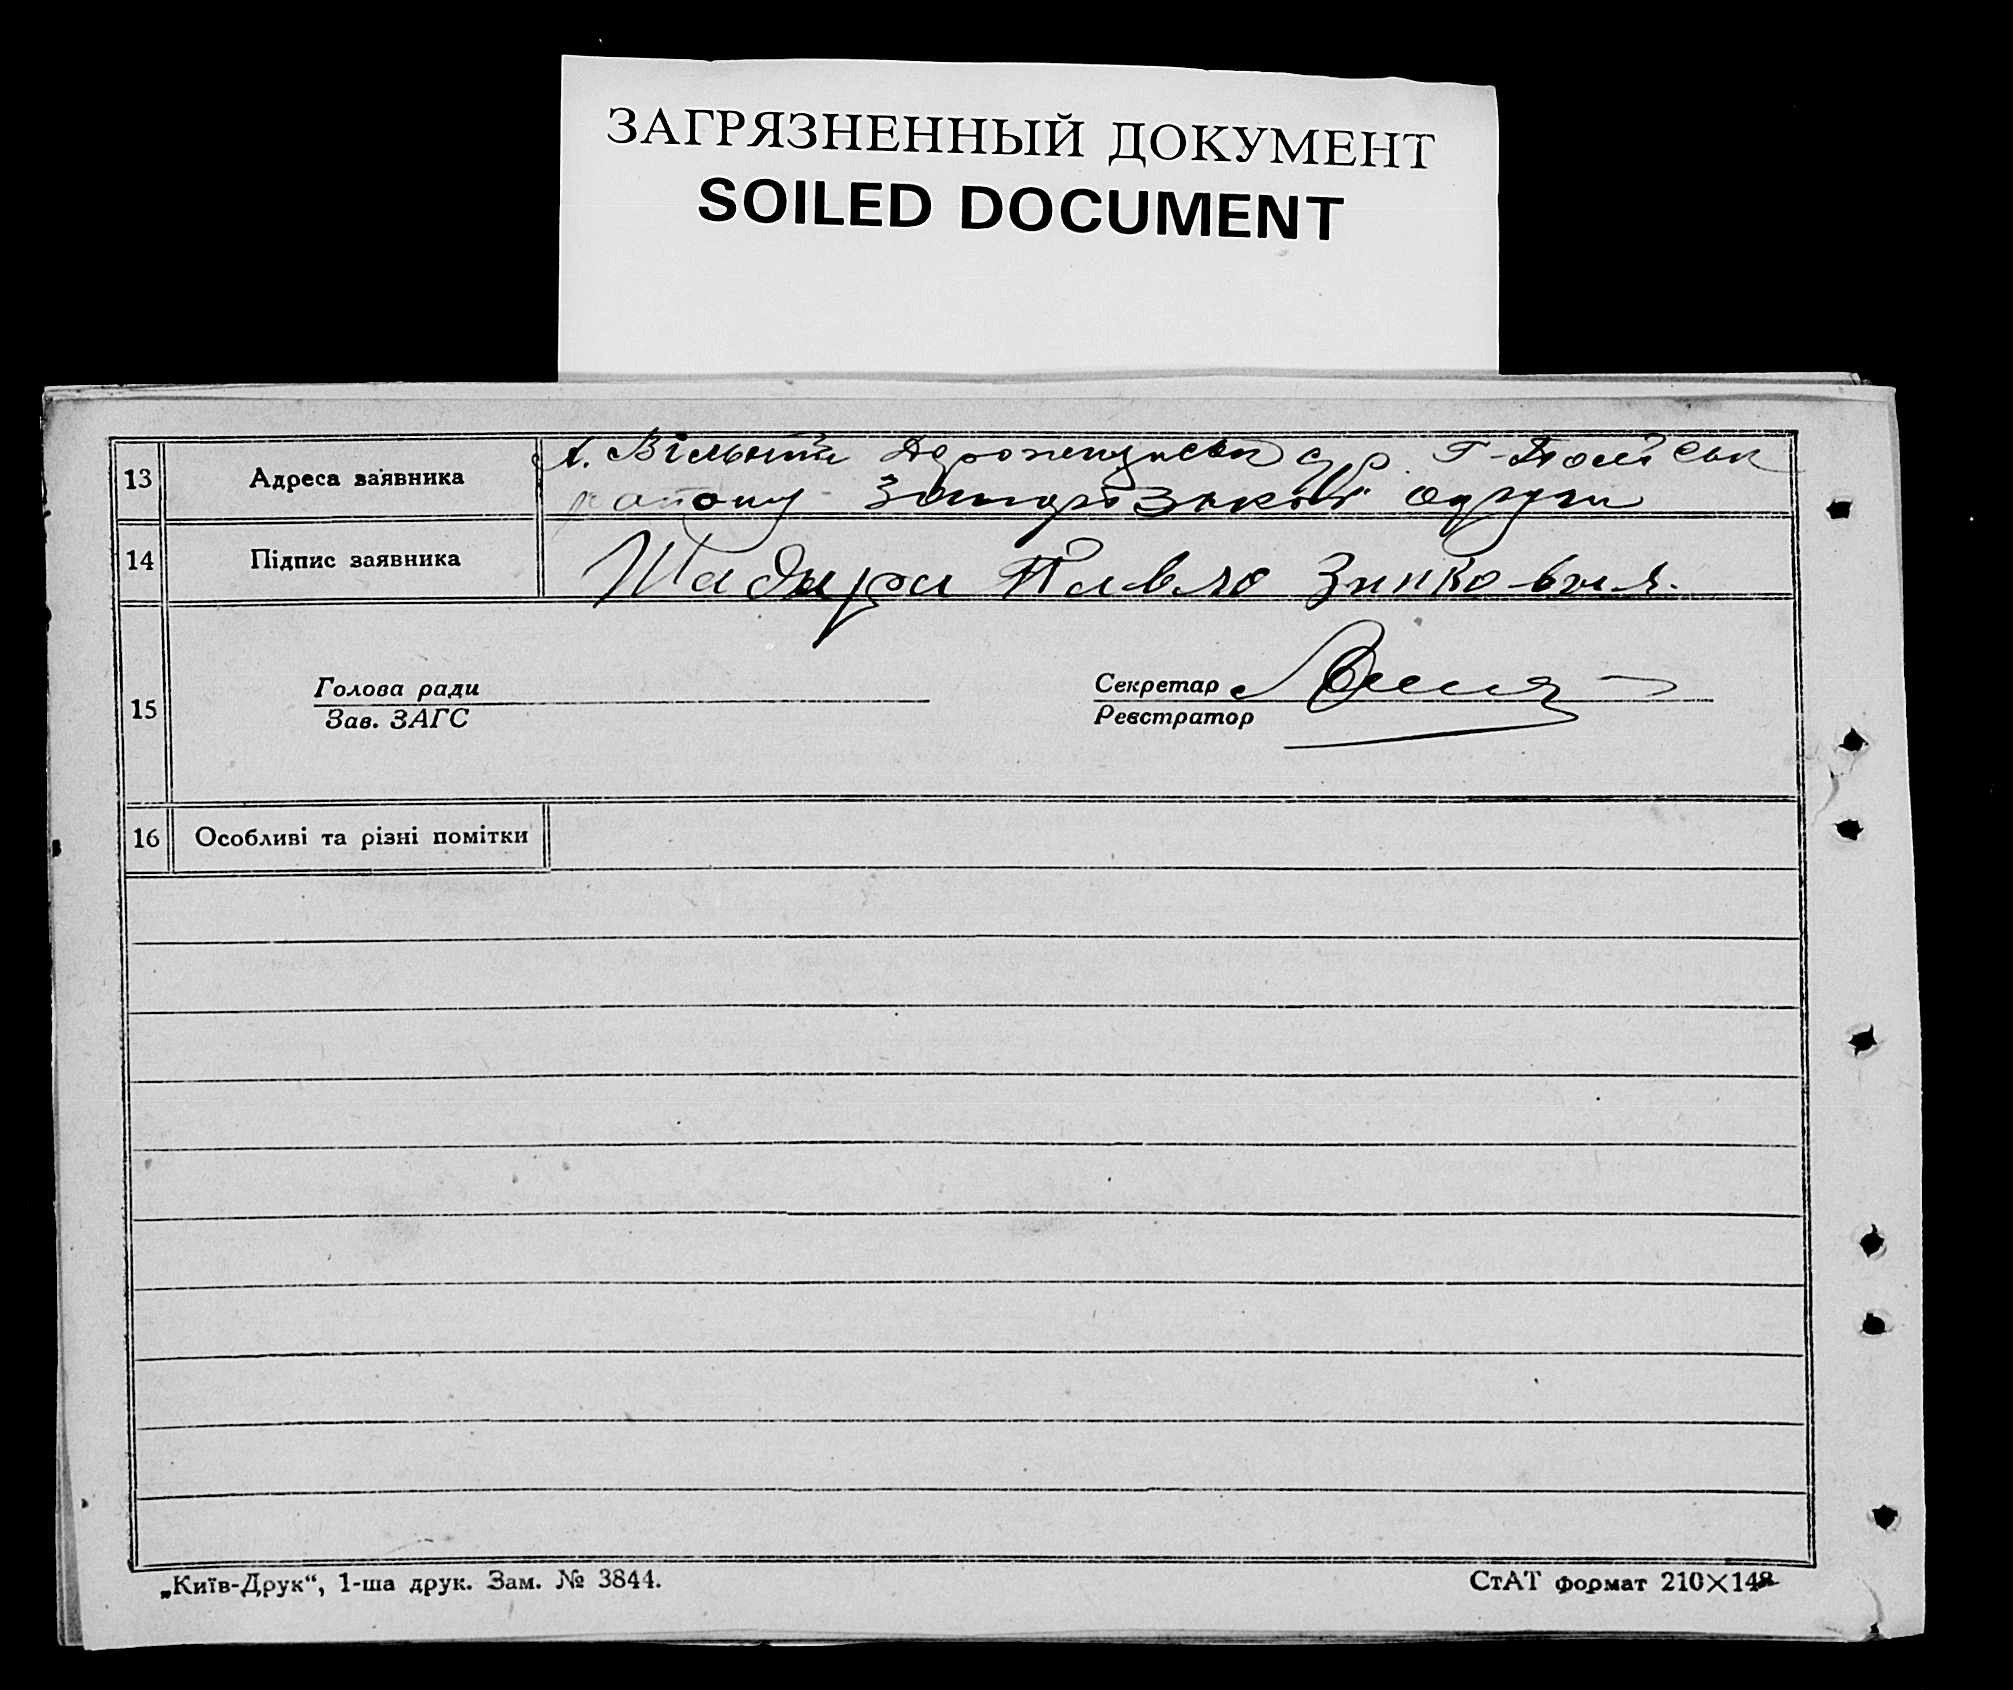 ЗАГРЯЗНЕННЫЙ ДОКУМЕНТ
SOILED DOCUMENT
13 Адреса заявника
району Запорозької округи
14 Підпис заявника Шадура Павло Зинкович
15
Голова ради
Зав. ЗАГС
Секретар
Реєстратор
16 Особливі та різні помітки
„Київ-Друк“, 1-ша друк. Зам. № 3844.
СтАТ формат 210×148